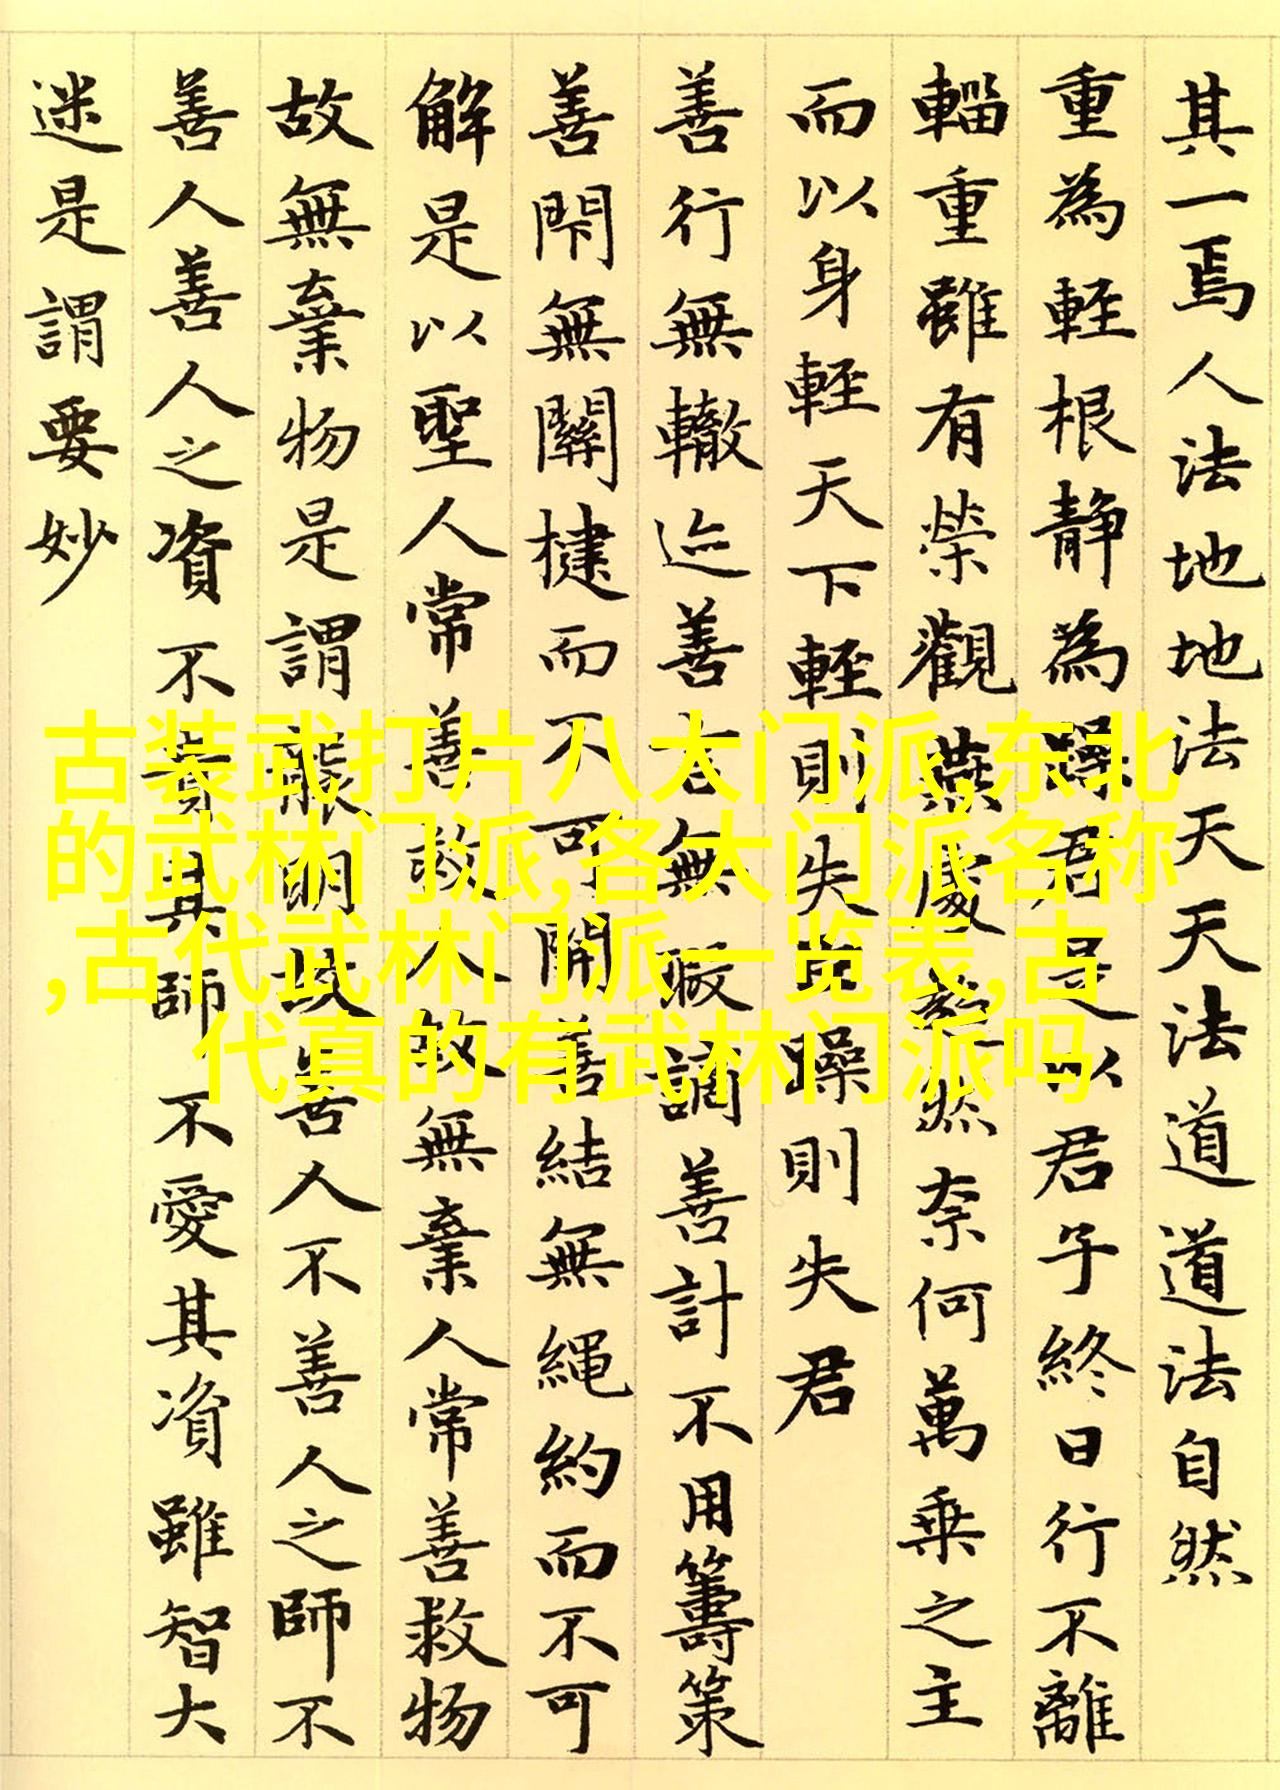 其一焉人法地地法天天法道道法自然
重為輕根靜為躁君是以君子終日行不離
輜重雖有榮觀燕處超然奈何萬乘之主
而以身輕天下輕則失臣躁則失君
善行無轍迹善言無瑕謫善計不用籌策
善閇無關楗而不可開善結無繩約而不可
解是以聖人常善救人故無棄人常善救物
故無棄物是謂襲明故善人不善人之師不
善人善人之資不貴其師不愛其資雖智大
迷是謂要妙
古装武打片八大门派,东北
的武林门派,各大门派名称
,古代武林门派一览表,古
代真的有武林门派吗